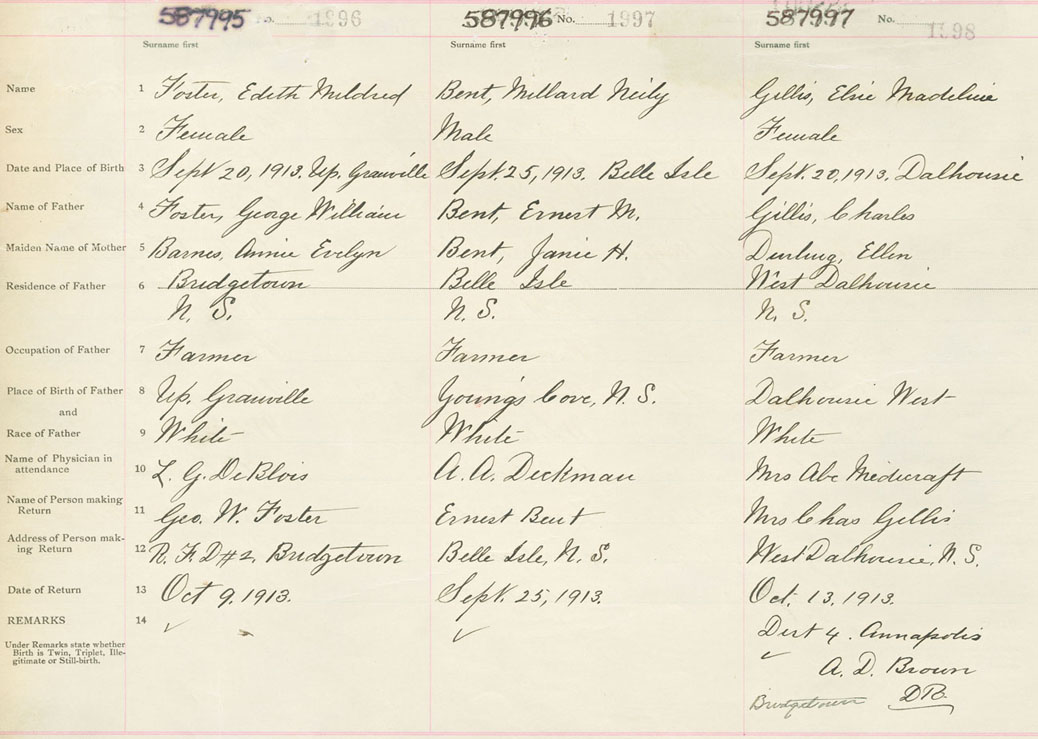 587995 No. 1996 587996 No. 1997 587997 No. 1998
Surname first Surname first Surname first
Name 1 Foster, Edith Mildred Bent, Millard Neily Gillis, Elsie Madeline
Sex 2 Female Male Female
Date and Place of Birth 3 Sept 20, 1913. Up. Granville Sept. 25, 1913. Belle Isle Sept. 20, 1913. Dalhousie
Name of Father 4 Foster, George William Bent, Ernest M. Gillis, Charles
Maiden Name of Mother 5 Barnes, Annie Evelyn Bent, Janie H. Durling, Ellen
Residence of Father 6 Bridgetown Belle Isle West Dalhousie
N. S. N. S. N. S.
Occupation of Father 7 Farmer Farmer Farmer
Place of Birth of Father 8 Up. Granville Young's Cove, N. S. Dalhousie West
and
Race of Father 9 White White White
Name of Physician in
attendance 10 L. G. DeBlois A. A. Deckman Mrs Abe Medicraft
Name of Person making
Return 11 Geo. W. Foster Ernest Bent Mrs Chas Gillis
Address of Person mak-
ing Return 12 R. F. D #2, Bridgetown Belle Isle, N. S. West Dalhousie, N. S.
Date of Return 13 Oct 9, 1913. Sept. 25, 1913. Oct. 13, 1913.
REMARKS 14 Dist 4. Annapolis
Under Remarks state whether
Birth is Twin, Triplet, Ille-
gitimate or Still-birth.
A. D. Brown
Bridgetown DR.